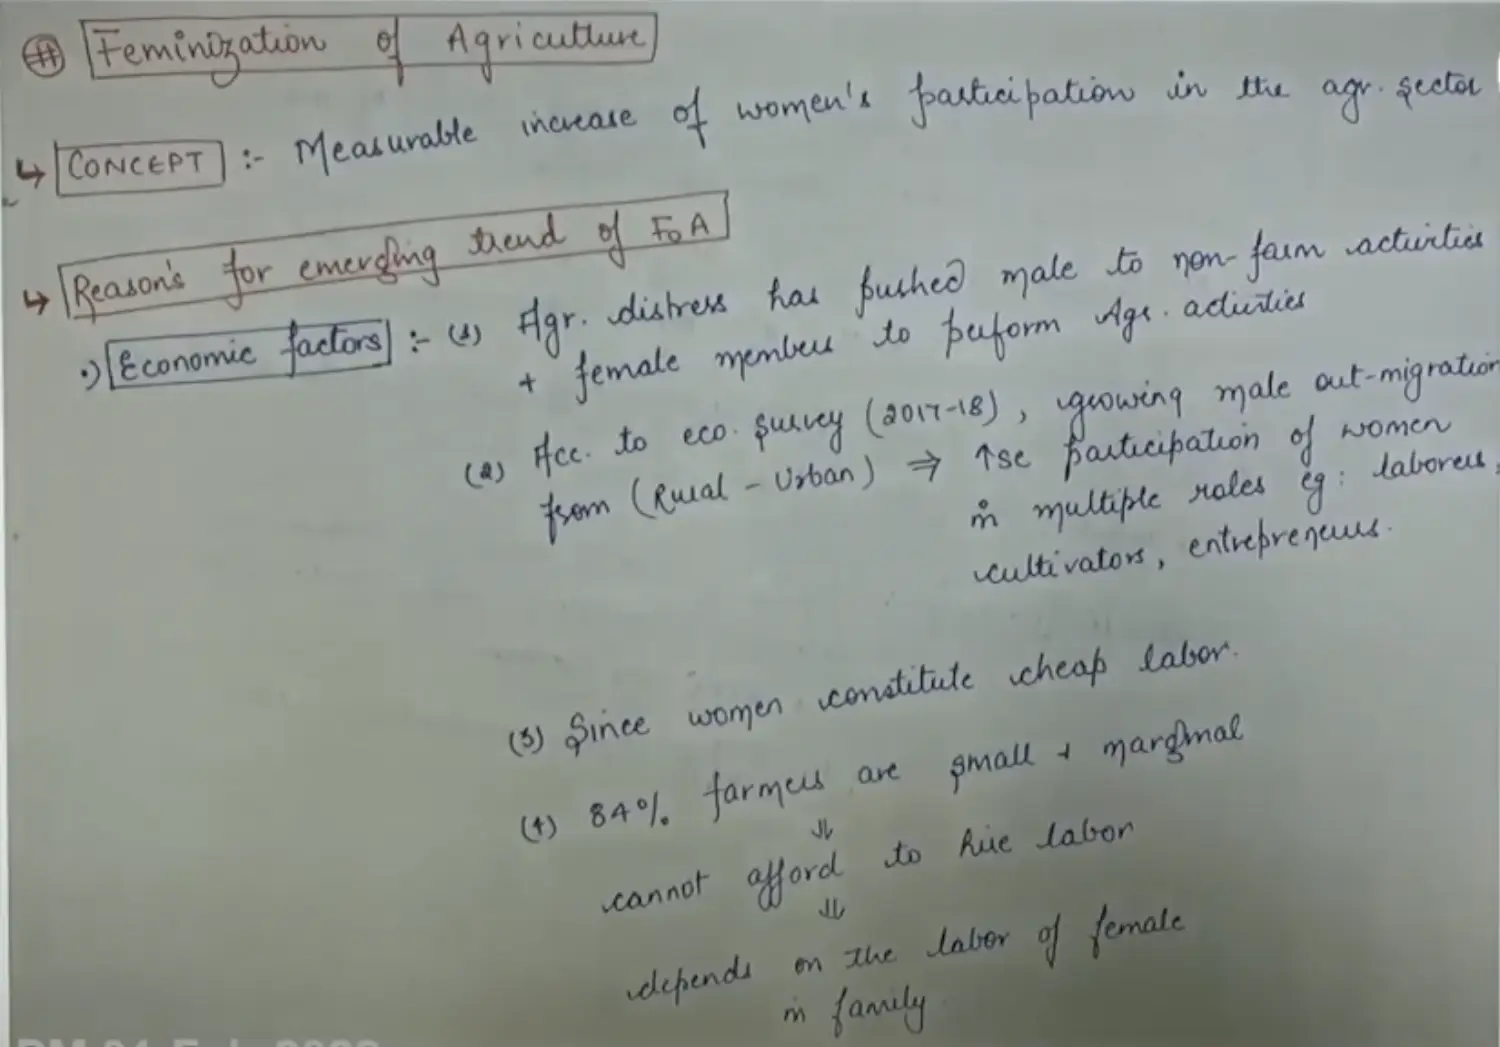 # Feminization of Agriculture
↳ CONCEPT :- Measurable increase of women's participation in the agr. sector
↳ Reason's for emerging trend of FoA
•) Economic factors :- (1) Agr. distress has pushed male to non-farm activities
+ female members to perform Agr. activities
(2) Acc. to eco. survey (2017-18), growing male out-migration
from (Rural - Urban) ⇒ ↑se participation of women
in multiple roles eg: laborers,
cultivators, entrepreneurs.
(3) Since women constitute cheap labor.
(4) 84% farmers are small + marginal
⇓
cannot afford to hire labor
⇓
depends on the labor of female
in family